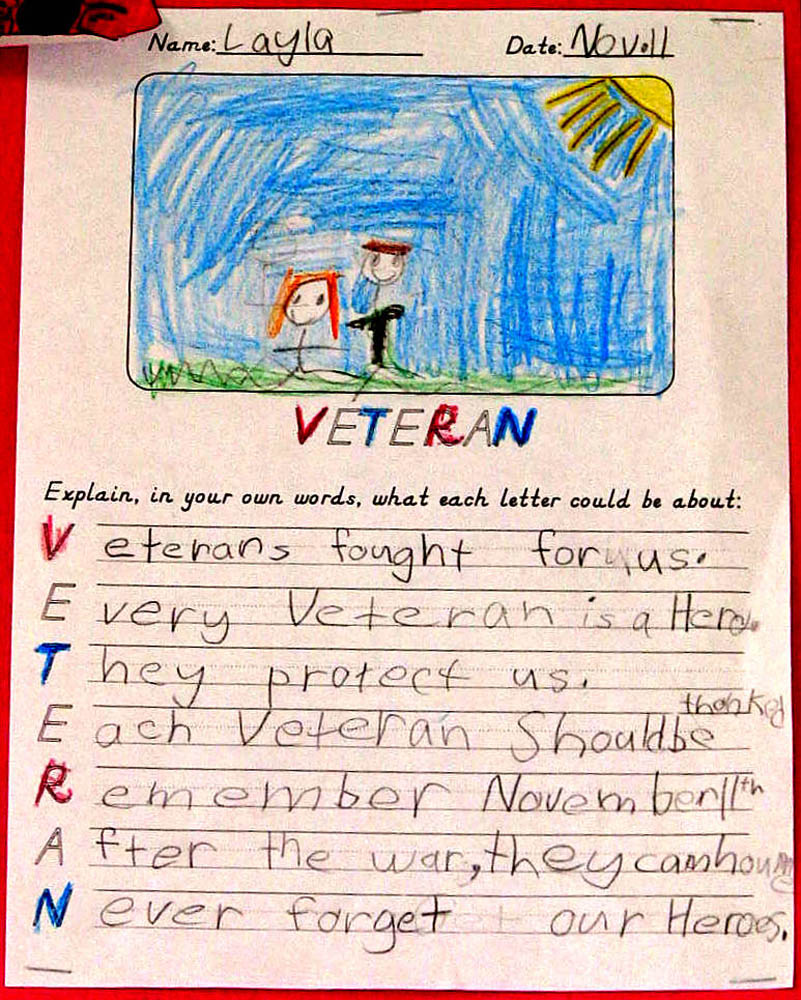 Name: Layla Date: Nov.11
VETERAN
Explain, in your own words, what each letter could be about:
Veterans fought for us.
Every Veteran is a Hero.
They protect us.
Each Veteran Should be thanked
Remember November 11th
After the war, they cam
Never forget our Heroes.